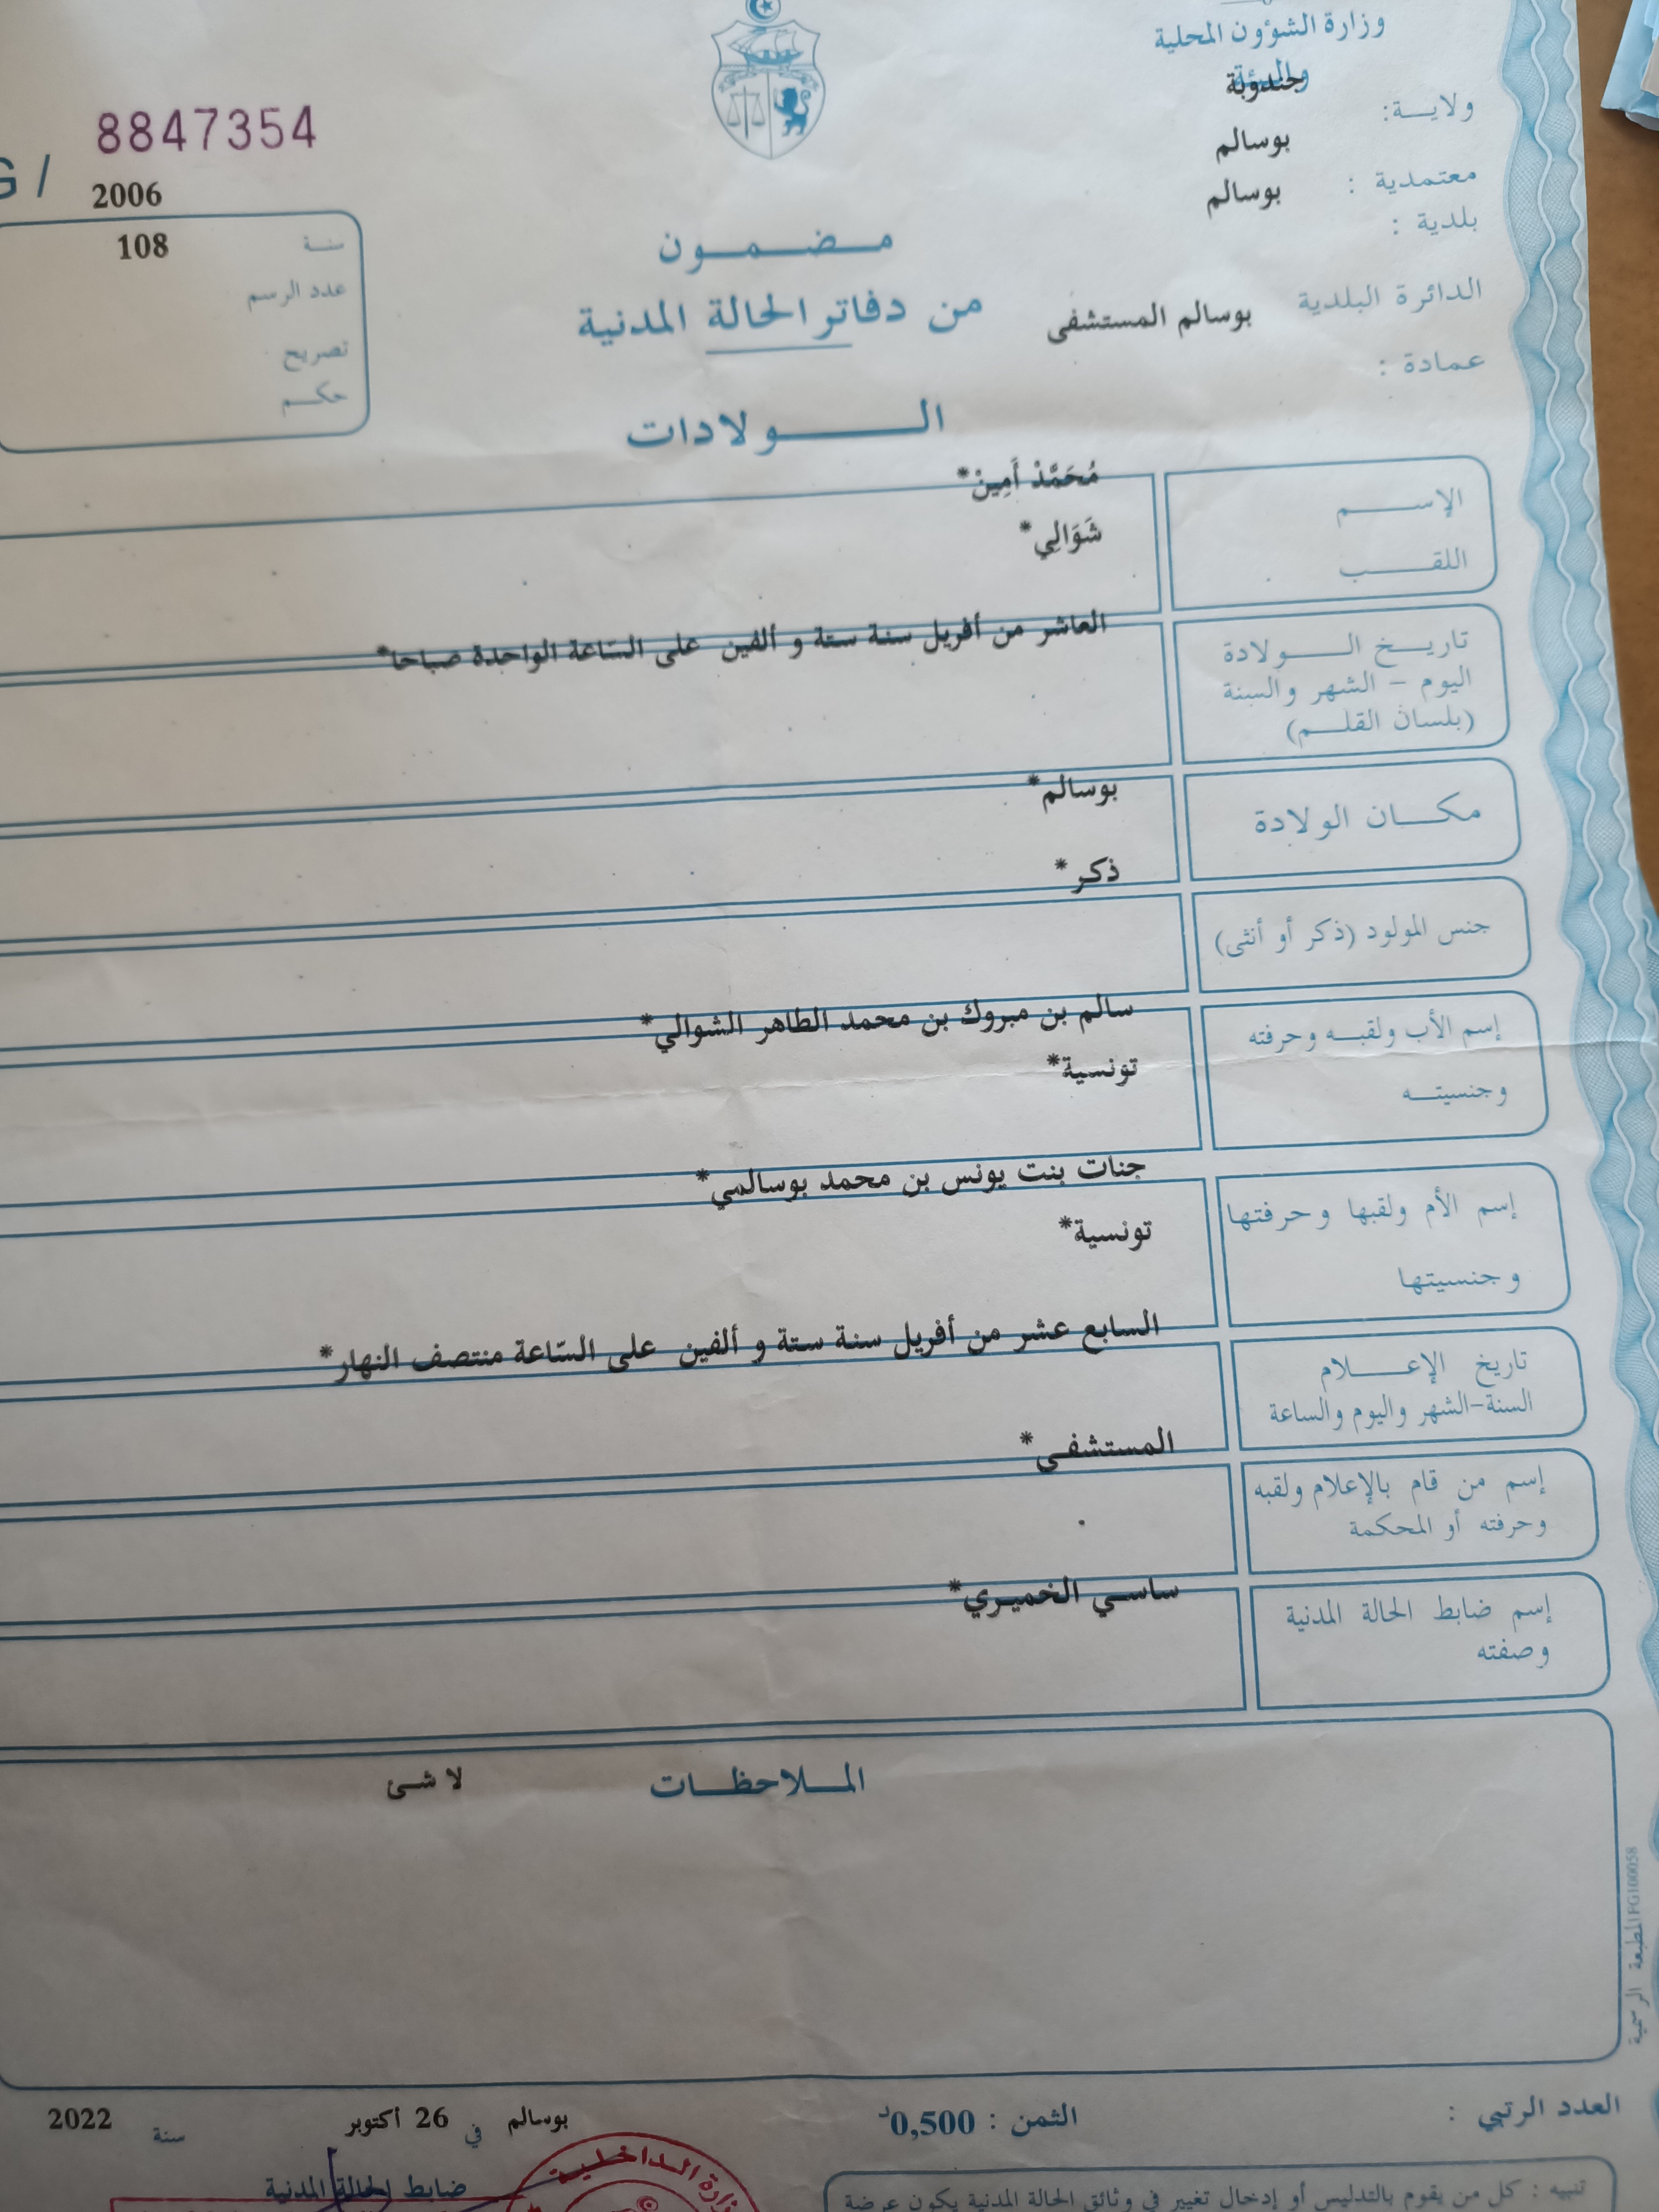 وزارة الشؤون المحلية
والبيئة
ولاية: جندوبة
معتمدية : بوسالم
بلدية : بوسالم
الدائرة البلدية بوسالم المستشفى
عمادة :
8847354
G /
2006
سنة 108
عدد الرسم
تصريح
حكم
مضمون
من دفاتر الحالة المدنية
الولادات
الإسم مُحَمَّدْ أَمِينْ*
اللقب شَوَالِي*
تاريخ الولادة العاشر من أفريل سنة ستة و ألفين على السّاعة الواحدة صباحا*
اليوم - الشهر والسنة
(بلسان القلم)
مكان الولادة بوسالم*
جنس المولود (ذكر أو أنثى) ذكر*
إسم الأب ولقبه وحرفته سالم بن مبروك بن محمد الطاهر الشوالي*
وجنسيته تونسية*
إسم الأم ولقبها وحرفتها جنات بنت يونس بن محمد بوسالمي*
وجنسيتها تونسية*
تاريخ الإعلام السابع عشر من أفريل سنة ستة و ألفين على السّاعة منتصف النهار*
السنة-الشهر واليوم والساعة
إسم من قام بالإعلام ولقبه المستشفى*
وحرفته أو المحكمة
إسم ضابط الحالة المدنية ساسي الخميري*
وصفته
الملاحظات لا شئ
المطبعة الرسمية FG100058
العدد الرتبي :
الثمن : 0,500د
بوسالم في 26 أكتوبر سنة 2022
ضابط الحالة المدنية
وزارة الداخلية
تنبيه : كل من يقوم بالتدليس أو إدخال تغيير في وثائق الحالة المدنية يكون عرضة